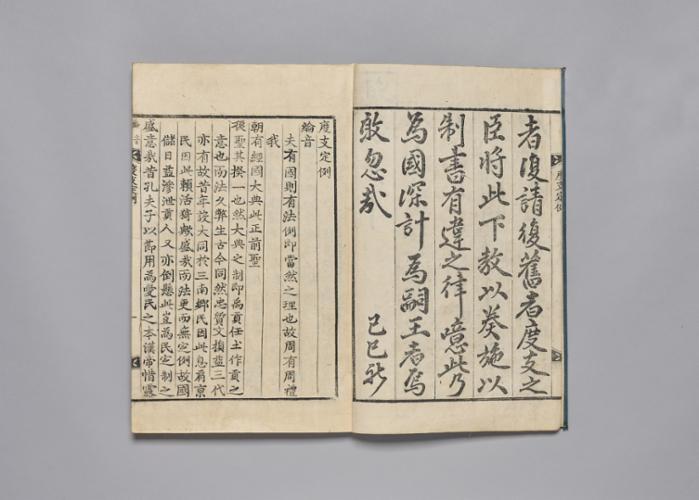 者復請復舊者度支之
臣將此下敎以葵施以
制書有違之律噫此乃
爲國深計爲嗣王者焉
敢忽哉
己巳
度支定例
度支定例
綸音
夫有國則有法例卽當然之理也故周有周禮
我
朝有經國大典此正前聖
後聖其揆一也然大典之制卽禹貢任土作貢之
意也而法久弊生古今同然忠質文損益三代
亦有故昔年設大同於三南鄕民因此息肩京
民因此賴活猗歟盛哉而法更而無定例故國
儲日益滲泄貢人又亦倒懸此豈爲民定制之
盛意哉昔孔夫子以節用爲愛民之本漢帝惜露